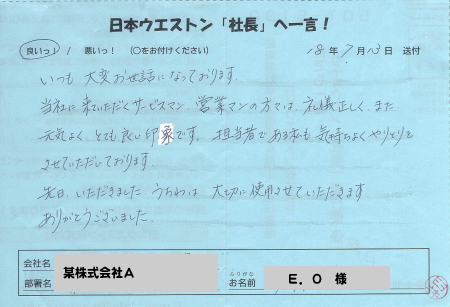 日本ウエストン「社長」へ一言！
良いっ！ / 悪いっ！ （○をお付けください） 18年7月13日 送付
いつも 大変お世話になっております。
当社に来ていただくサービスマン、営業マンの方々は、礼儀正しく、また
元気よく、とても良い印象です。担当者である私も気持ちよくやりとりを
させていただいております。
先日、いただきました うちわは 大切に使用させていただきます
ありがとうございました。
会社名 某株式会社A
部署名
ふりがな
お名前 E．O 様